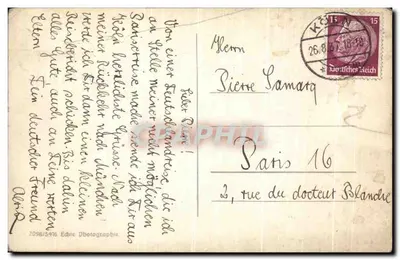 Lieber Pierre!
Von einer Deutschlandreise, die ich
an Stelle meiner nicht möglichen
Pariserreise mache sende ich Dir aus
Köln herzlichste Grüsse. Nach
meiner Rückkehr nach München
werde ich Dir dann einen kleinen
Reisebericht schicken. Bis dahin
alles Gute auch an Deine werten
Eltern
Dein deutscher Freund
Alfred
KÖLN
15
Deutsches Reich
Herrn
Pierre Lamarq
Paris 16
2, rue du docteur Blanche
Echte Photographie